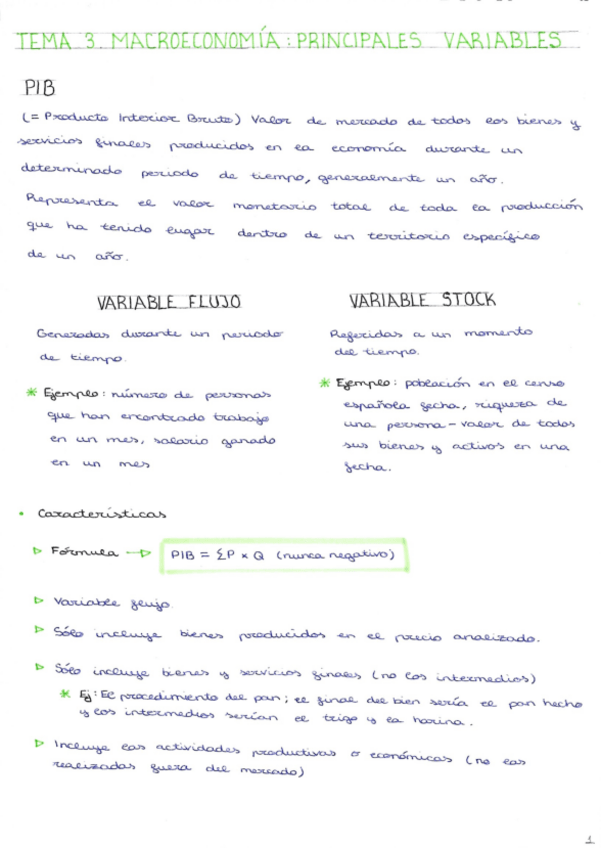 TEMA 3. MACROECONOMÍA: PRINCIPALES VARIABLES
PIB
(= Producto Interior Bruto) Valor de mercado de todos los bienes y
servicios finales producidos en la economía durante un
determinado periodo de tiempo, generalmente un año.
Representa el valor monetario total de toda la producción
que ha tenido lugar dentro de un territorio específico
de un año.
VARIABLE FLUJO
Generadas durante un periodo
de tiempo.
* Ejemplo: número de personas
que han encontrado trabajo
en un mes, salario ganado
en un mes
VARIABLE STOCK
Referidas a un momento
del tiempo.
* Ejemplo: población en el censo
española fecha, riqueza de
una persona - valor de todos
sus bienes y activos en una
fecha.
• Características
▷ Fórmula → PIB = ΣP × Q (nunca negativo)
▷ Variable flujo.
▷ Sólo incluye bienes producidos en el precio analizado.
▷ Sólo incluye bienes y servicios finales (no los intermedios)
* Ej: El procedimiento del pan; el final del bien sería el pan hecho
y los intermedios serían el trigo y la harina.
▷ Incluye las actividades productivas o económicas (no las
realizadas fuera del mercado)
1